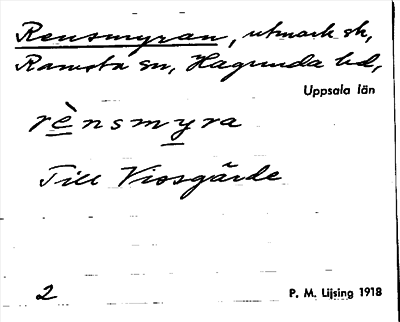 Rensmyran, utmark sk,
Ramsta sn, Hagunda hd,
Uppsala län
rènsmyra
Till Vissgärde
2
P. M. Lijsing 1918